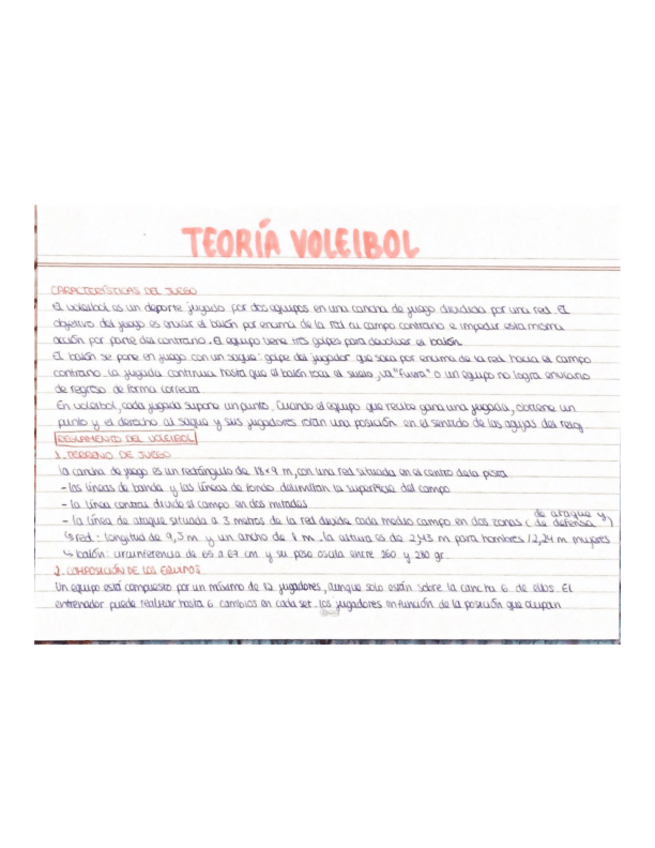 TEORÍA VOLEIBOL
CARACTERÍSTICAS DEL JUEGO
El voleibol es un deporte jugado por dos equipos en una cancha de juego dividida por una red. El
objetivo del juego es enviar el balón por encima de la red al campo contrario e impedir esta misma
acción por parte del contrario. El equipo tiene tres golpes para devolver el balón.
El balón se pone en juego con un saque: golpe del jugador que saca por encima de la red hacia el campo
contrario. La jugada continua hasta que el balón toca el suelo, va "fuera" o un equipo no logra enviarlo
de regreso de forma correcta.
En voleibol, cada jugada supone un punto. Cuando el equipo que recibe gana una jugada, obtiene un
punto y el derecho al saque y sus jugadores rotan una posición en el sentido de las agujas del reloj.
REGLAMENTO DEL VOLEIBOL
1. TERRENO DE JUEGO
La cancha de juego es un rectángulo de 18x9 m, con una red situada en el centro de la pista.
- las líneas de banda y las líneas de fondo delimitan la superficie del campo
- la línea central divide el campo en dos mitades
- la línea de ataque situada a 3 metros de la red divide cada medio campo en dos zonas (de ataque y de defensa)
↳ red: longitud de 9,5 m y un ancho de 1 m. la altura es de 2,43 m para hombres / 2,24 m mujeres
↳ balón: circunferencia de 65 a 67 cm y su peso oscila entre 260 y 280 gr.
2. COMPOSICIÓN DE LOS EQUIPOS
Un equipo está compuesto por un máximo de 12 jugadores, aunque solo están sobre la cancha 6 de ellos. El
entrenador puede realizar hasta 6 cambios en cada set. Los jugadores en función de la posición que ocupan